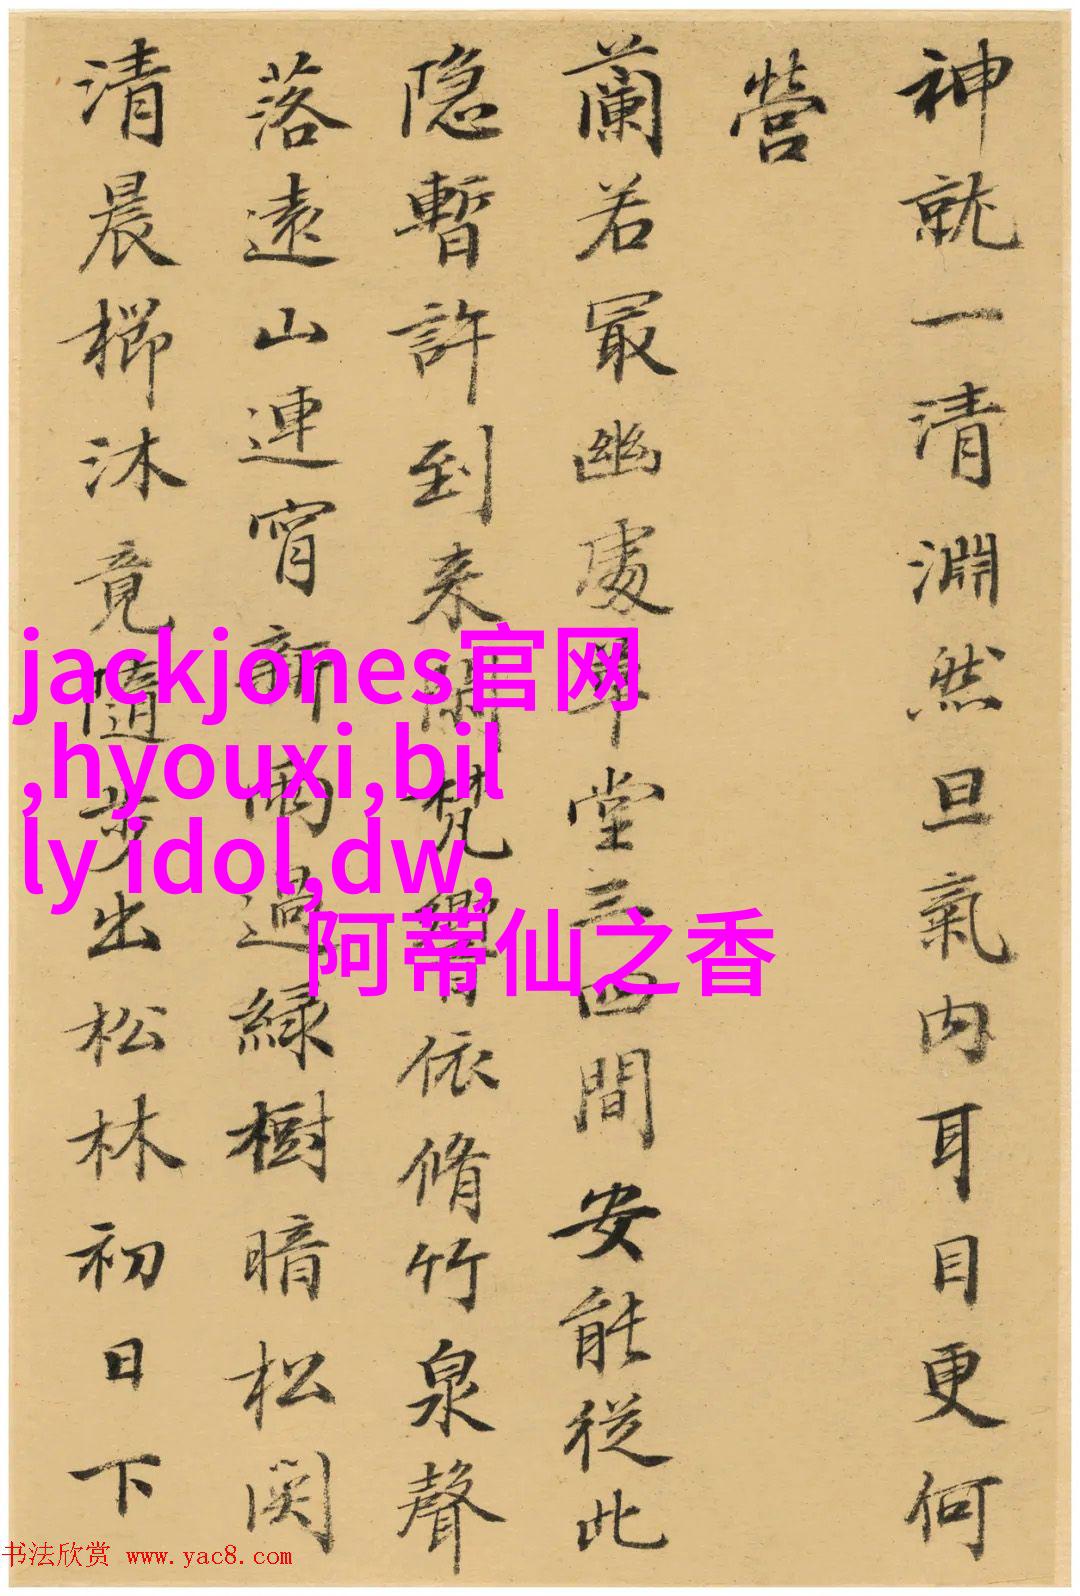 神就一清淵然旦氣內耳目更何
營
蘭若冣幽處畢堂三四間安能從此
隐暫許到来閑梵響依脩竹泉聲
落遠山連宵新雨過緑樹暗松関
清晨櫛沐竟隨步出松林初日下
jackjones官网
,hyouxi,bil
ly idol,dw,
阿蒂仙之香
书法欣赏 www.yac8.com